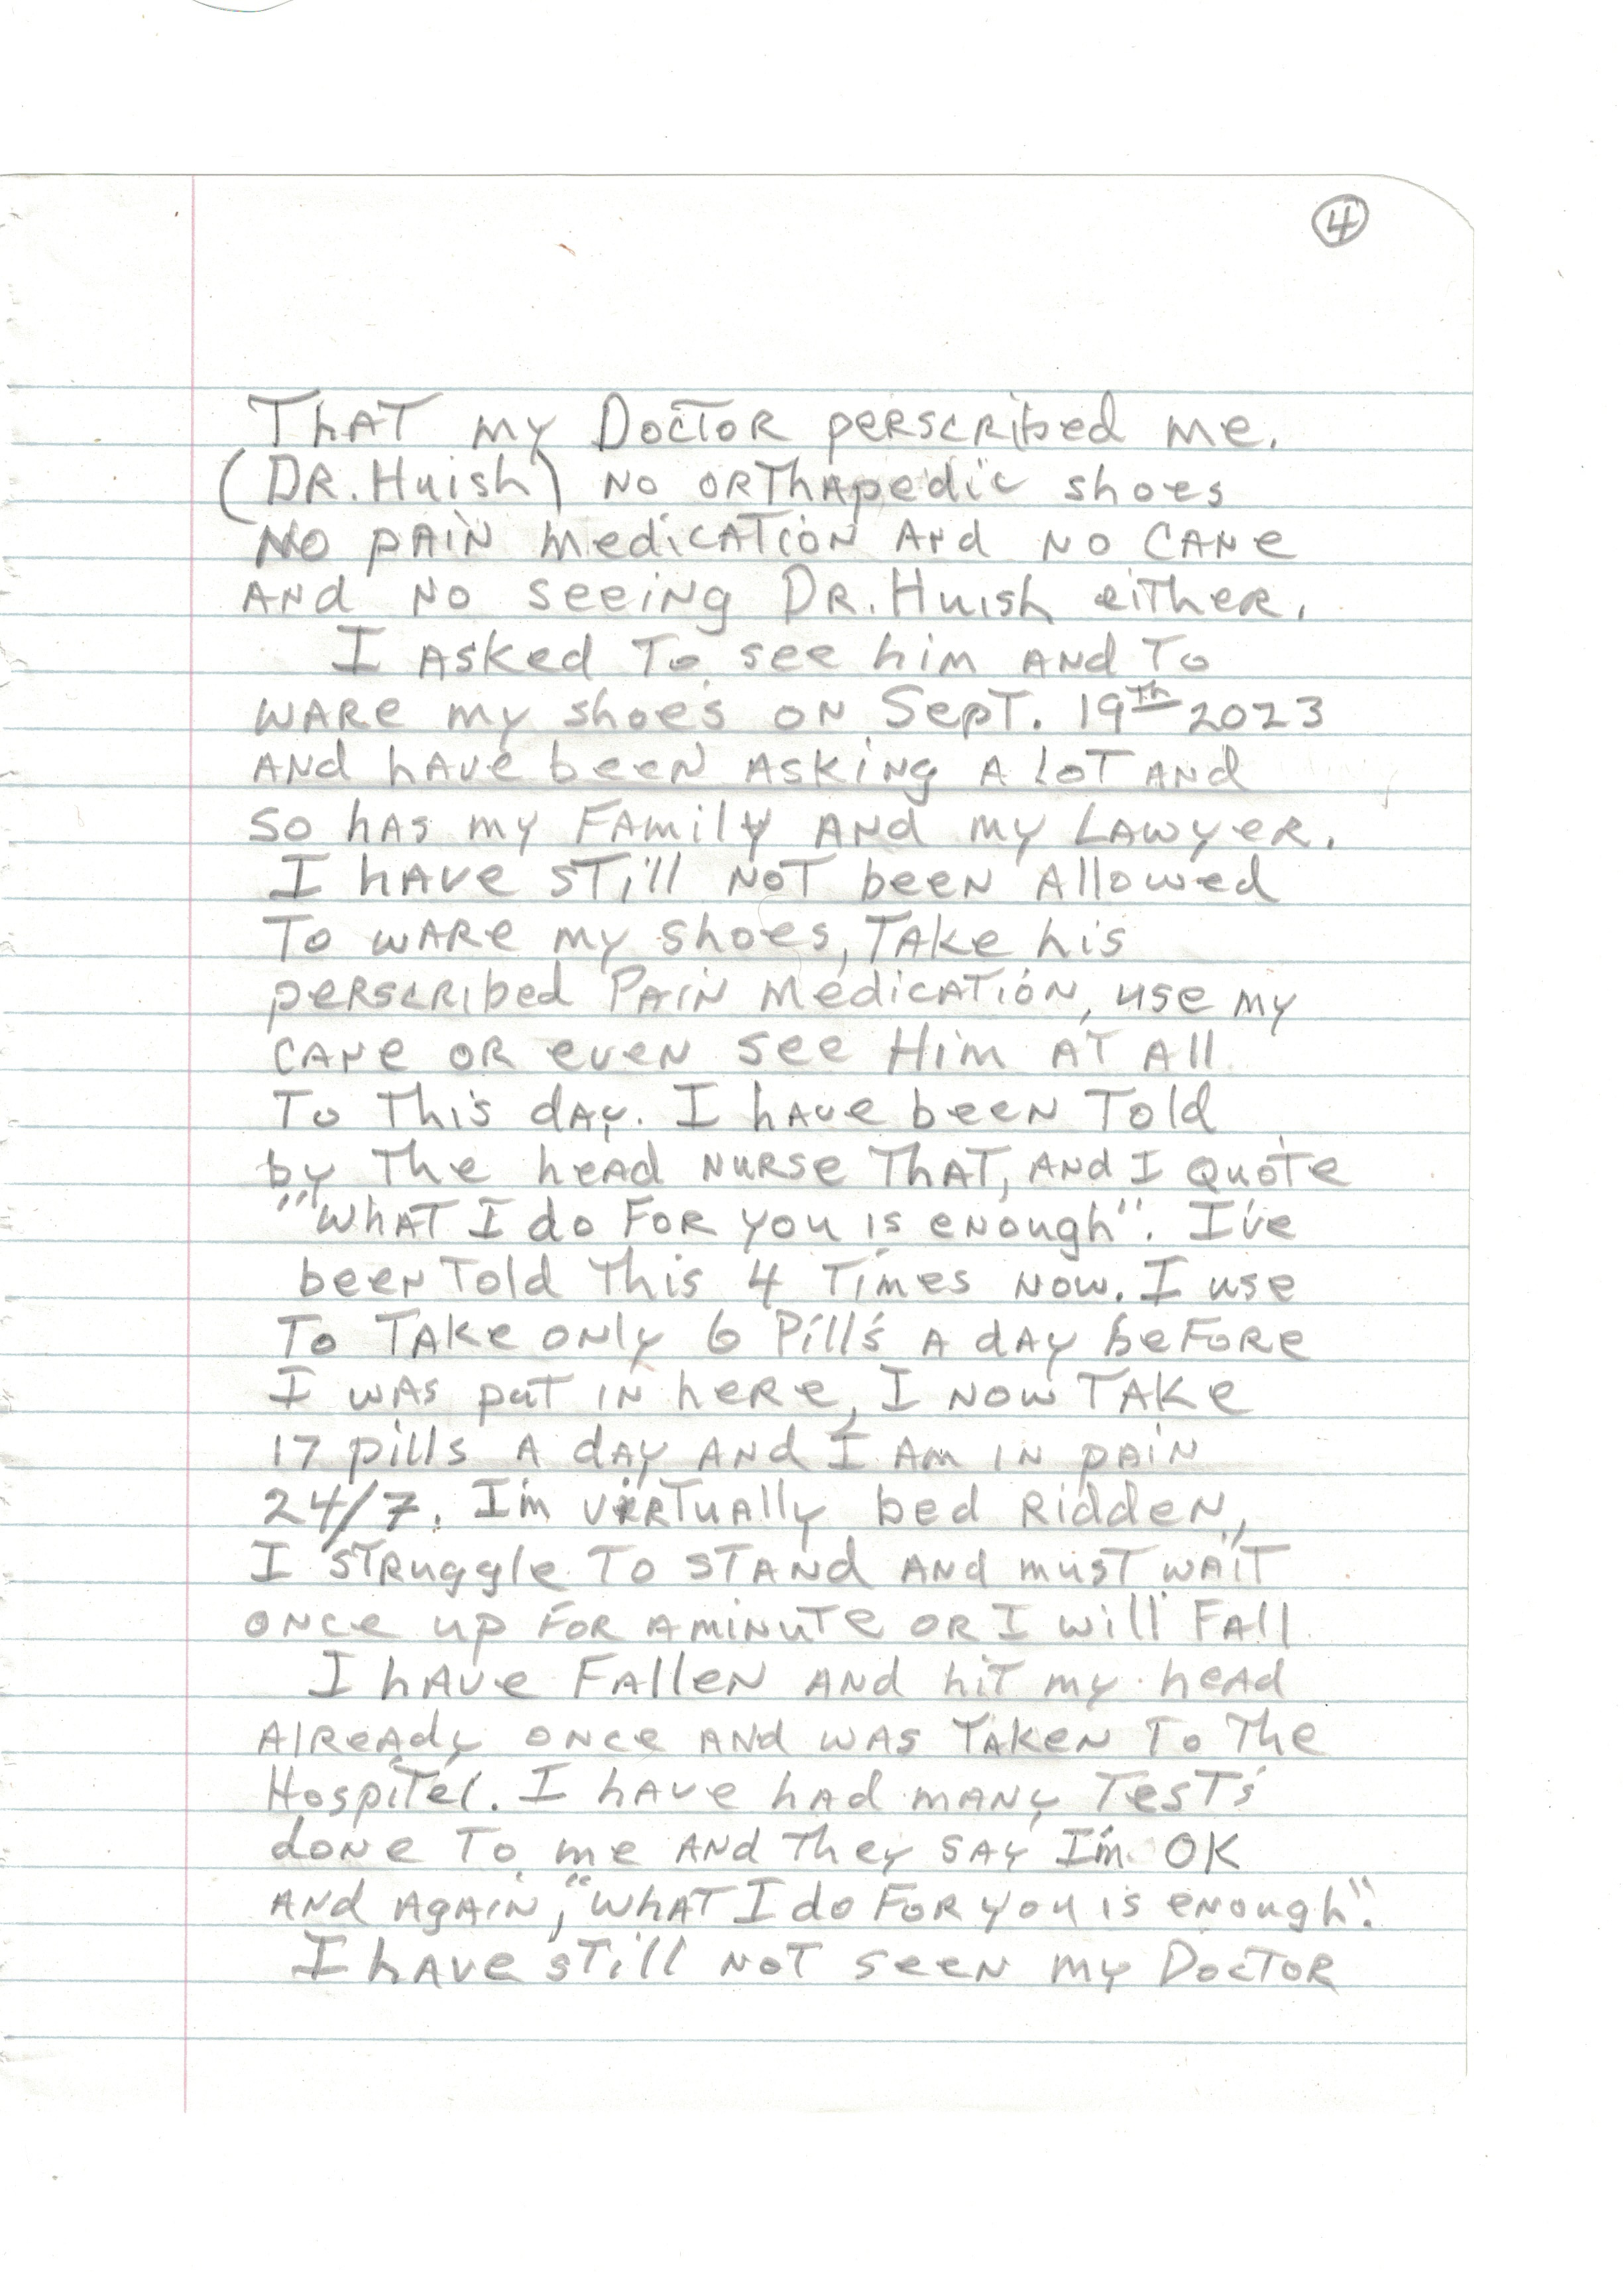 4
That my Doctor perscribed me.
(DR. Huish) no orthapedic shoes
No pain medication and no cane
and no seeing DR. Huish either.
I asked to see him and to
ware my shoes on Sept. 19th 2023
and have been asking a lot and
so has my Family and my Lawyer.
I have still not been allowed
to ware my shoes, take his
perscribed Pain medication, use my
cane or even see Him at all
to this day. I have been told
by the head nurse that, and I quote
"What I do for you is enough". I've
been told this 4 times now. I use
to take only 6 Pill's a day before
I was put in here, I now take
17 pills a day and I am in pain
24/7. I'm virtually bed ridden,
I struggle to stand and must wait
once up for a minute or I will fall
I have fallen and hit my head
already once and was taken to the
Hospitel. I have had many test's
done to me and they say I'm OK
and again, "What I do for you is enough".
I have still not seen my Doctor